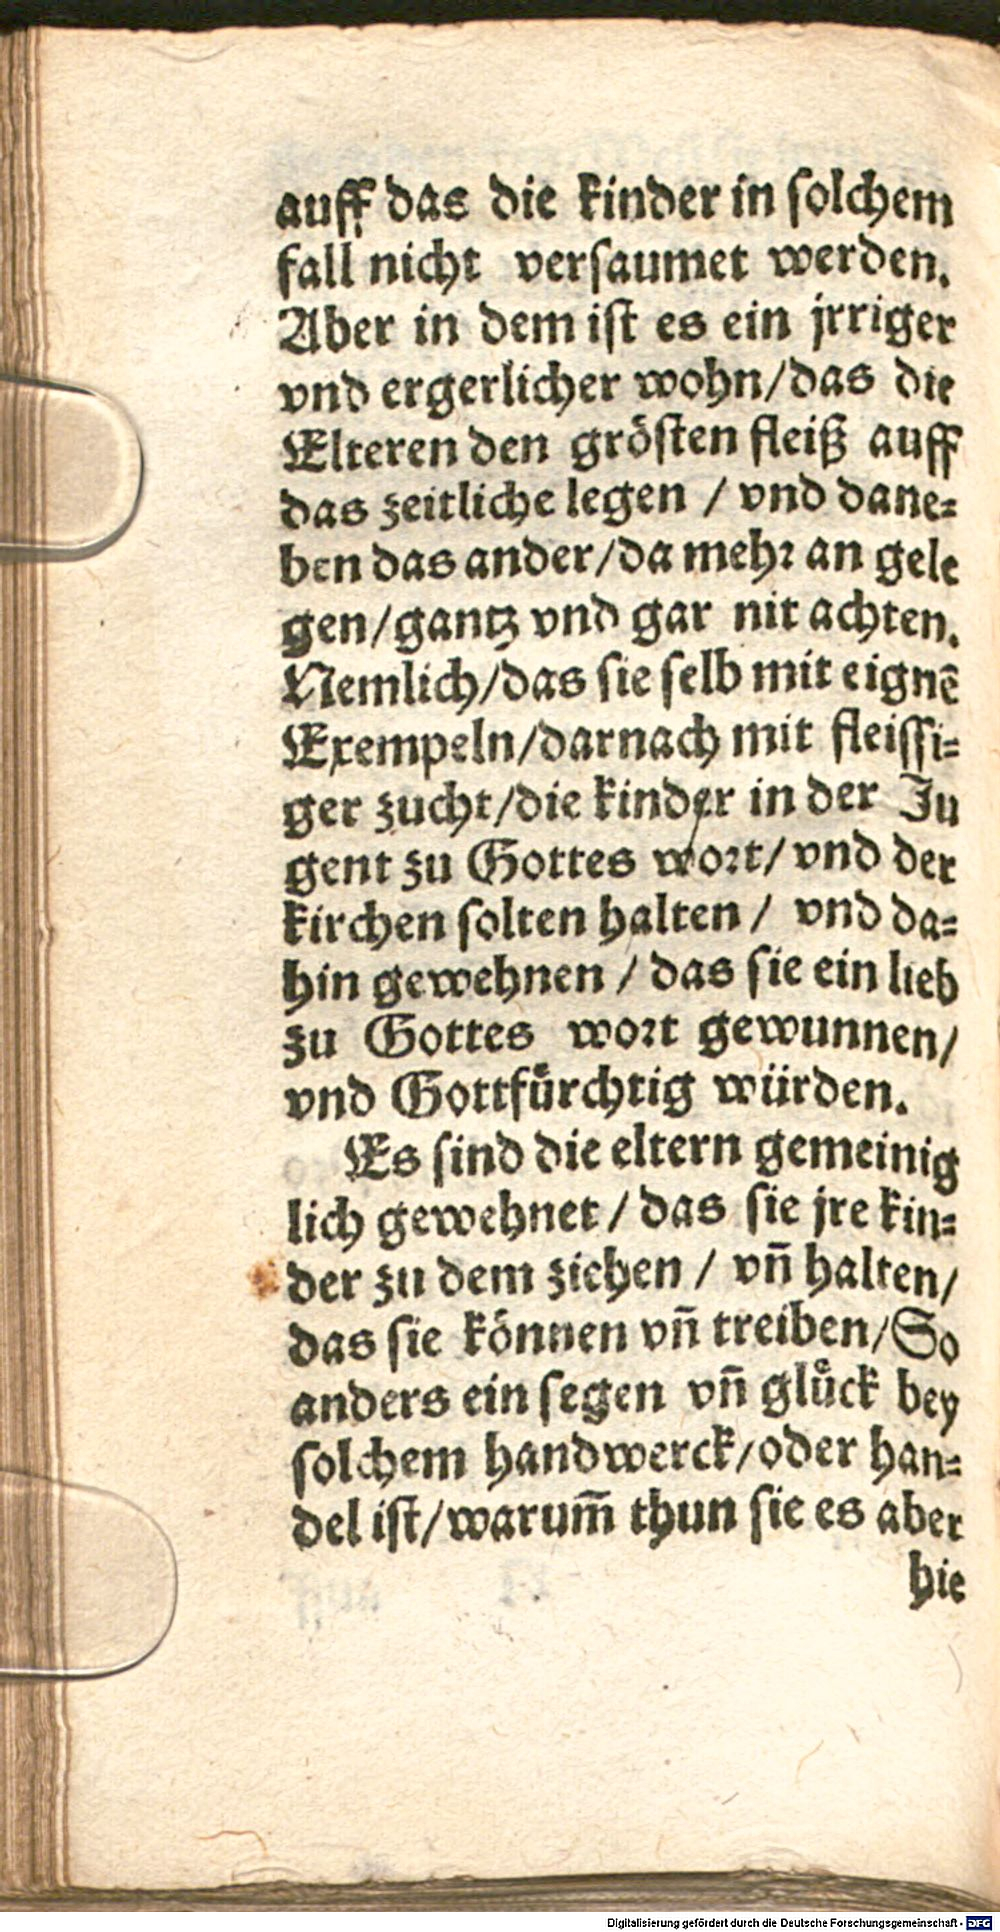 auff das die kinder in ſolchem
fall nicht verſaumet werden.
Aber in dem iſt es ein jrriger
vnd ergerlicher wohn/das die
Elteren den gröſten fleiß auff
das zeitliche legen / vnd dane⸗
ben das ander/da mehꝛ an gele
gen/gantz vnd gar nit achten.
Nemlich/das ſie ſelb mit eignē
Exempeln/darnach mit fleiſſi⸗
ger zucht/die kinder in der Ju
gent zu Gottes woꝛt/ vnd der
kirchen ſolten halten / vnd da⸗
hin gewehnen / das ſie ein lieb
zu Gottes woꝛt gewunnen/
vnd Gottfuͤrchtig würden.
Es ſind die eltern gemeinig
lich gewehnet / das ſie jre kin⸗
der zu dem ziehen / vñ halten/
das ſie können vñ treiben/So
anders ein ſegen vñ gluͤck bey
ſolchem handwerck/oder han⸗
del iſt/warum̄ thun ſie es aber
hie
Digitalisierung gefördert durch die Deutsche Forschungsgemeinschaft - DFG